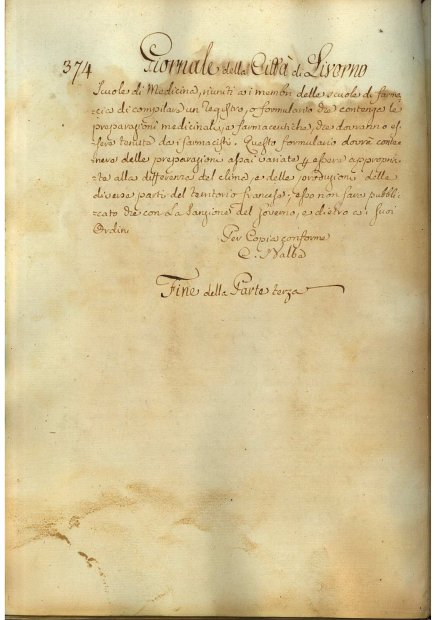 374 Giornale della Città di Livorno
Scuole di Medicina, riuniti a i membri delle scuole di farma
cia di compilare un registro, o formulario che contenga le
preparazioni medicinali, e farmaceutiche, che dovranno es
sere tenute da i farmacisti. Questo formulario dovrà conte
nere delle preparazioni assai variate, essere appropria
te alla differenza del clima, e delle produzioni delle
diverse parti del territorio francese; esso non sarà pubbli
cato che con la Sanzione del Governo, e dietro a i suoi
Ordini
Per Copia conforme
C. Nalba
Fine della Parte terza